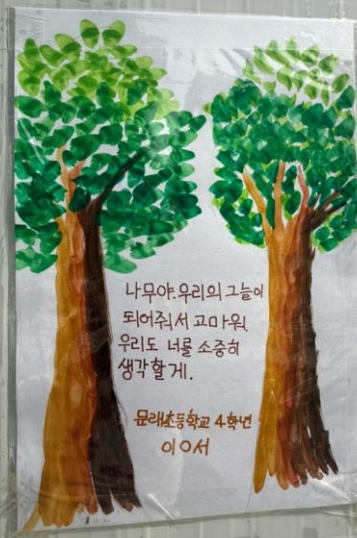 나무야. 우리의 그늘이
되어줘서 고마워.
우리도 너를 소중히
생각할게.
문래초등학교 4학년
이O서